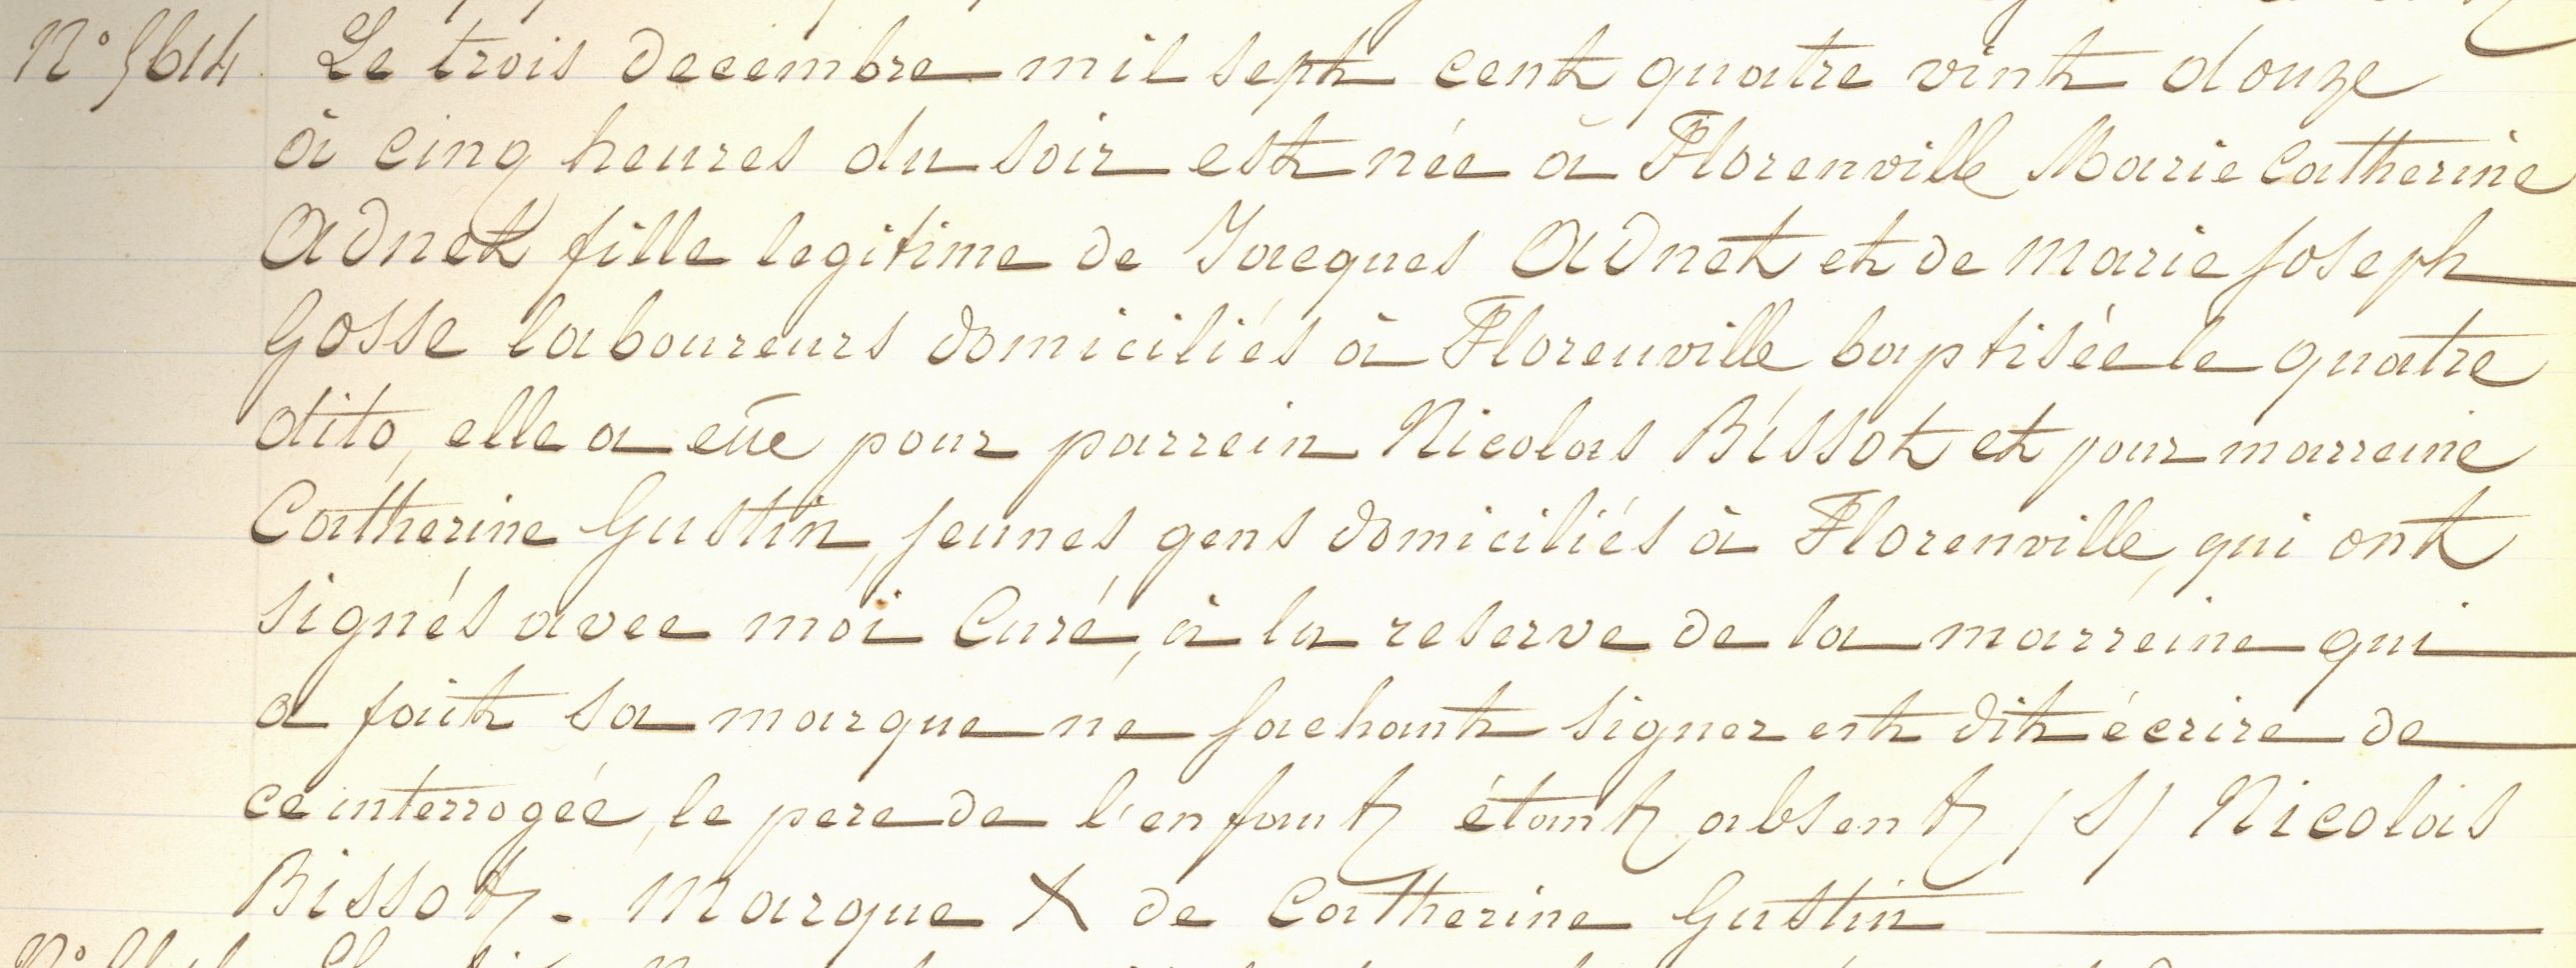 N° 5614 Le trois decembre mil sept cent quatre vint douze
à cinq heures du soir est née à Florenville Marie Catherine
Adnet fille legitime de Jacques Adnet et de Marie Joseph
Gosse laboureurs domiciliés à Florenville baptisée le quatre
dito, elle a eüe pour parrein Nicolas Bissot et pour marreine
Catherine Gustin, jeunes gens domiciliés à Florenville, qui ont
signés avec moi Curé, à la reserve de la marreine qui
a fait sa marque ne sachant signer est dit écrire de
ce interrogée, le pere de l'enfant étant absent /S/ Nicolas
Bissot. Marque X de Catherine Gustin